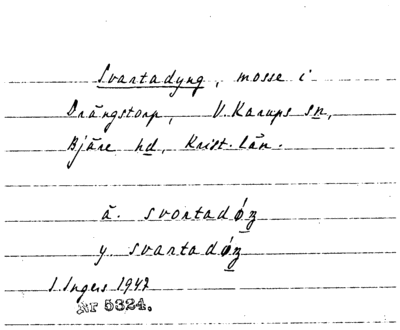 Svartadyng, mosse i
Drängstorp, V. Karups sn,
Bjäre hd, Krist. län.
ä. svortadǿŋ
y. svartadǿŋ
I. Ingers 1947
Nr 5324.